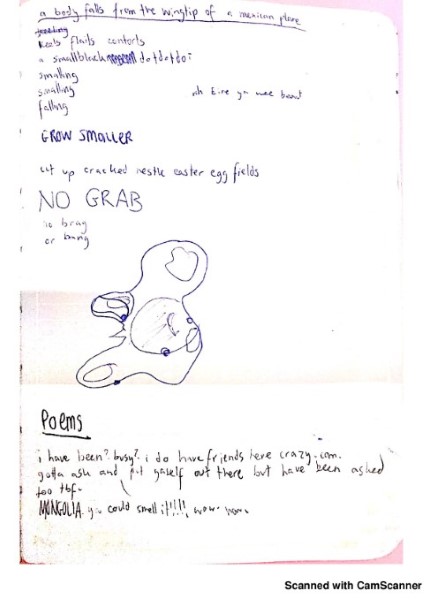 a body falls from the wingtip of a mexican plane
heels flails contorts
a small black dotdotdot
smalling
smalling
falling
ah Eire ya wee beaut
GROW SMALLER
cut up cracked nestle easter egg fields
NO GRAB
no brag
or bang
Poems
i have been? busy? i do have friends here crazy. am.
gotta ask and put yaself out there but have been asked
too tbf.
MONGOLIA. you could smell it!!!! wow.
Scanned with CamScanner